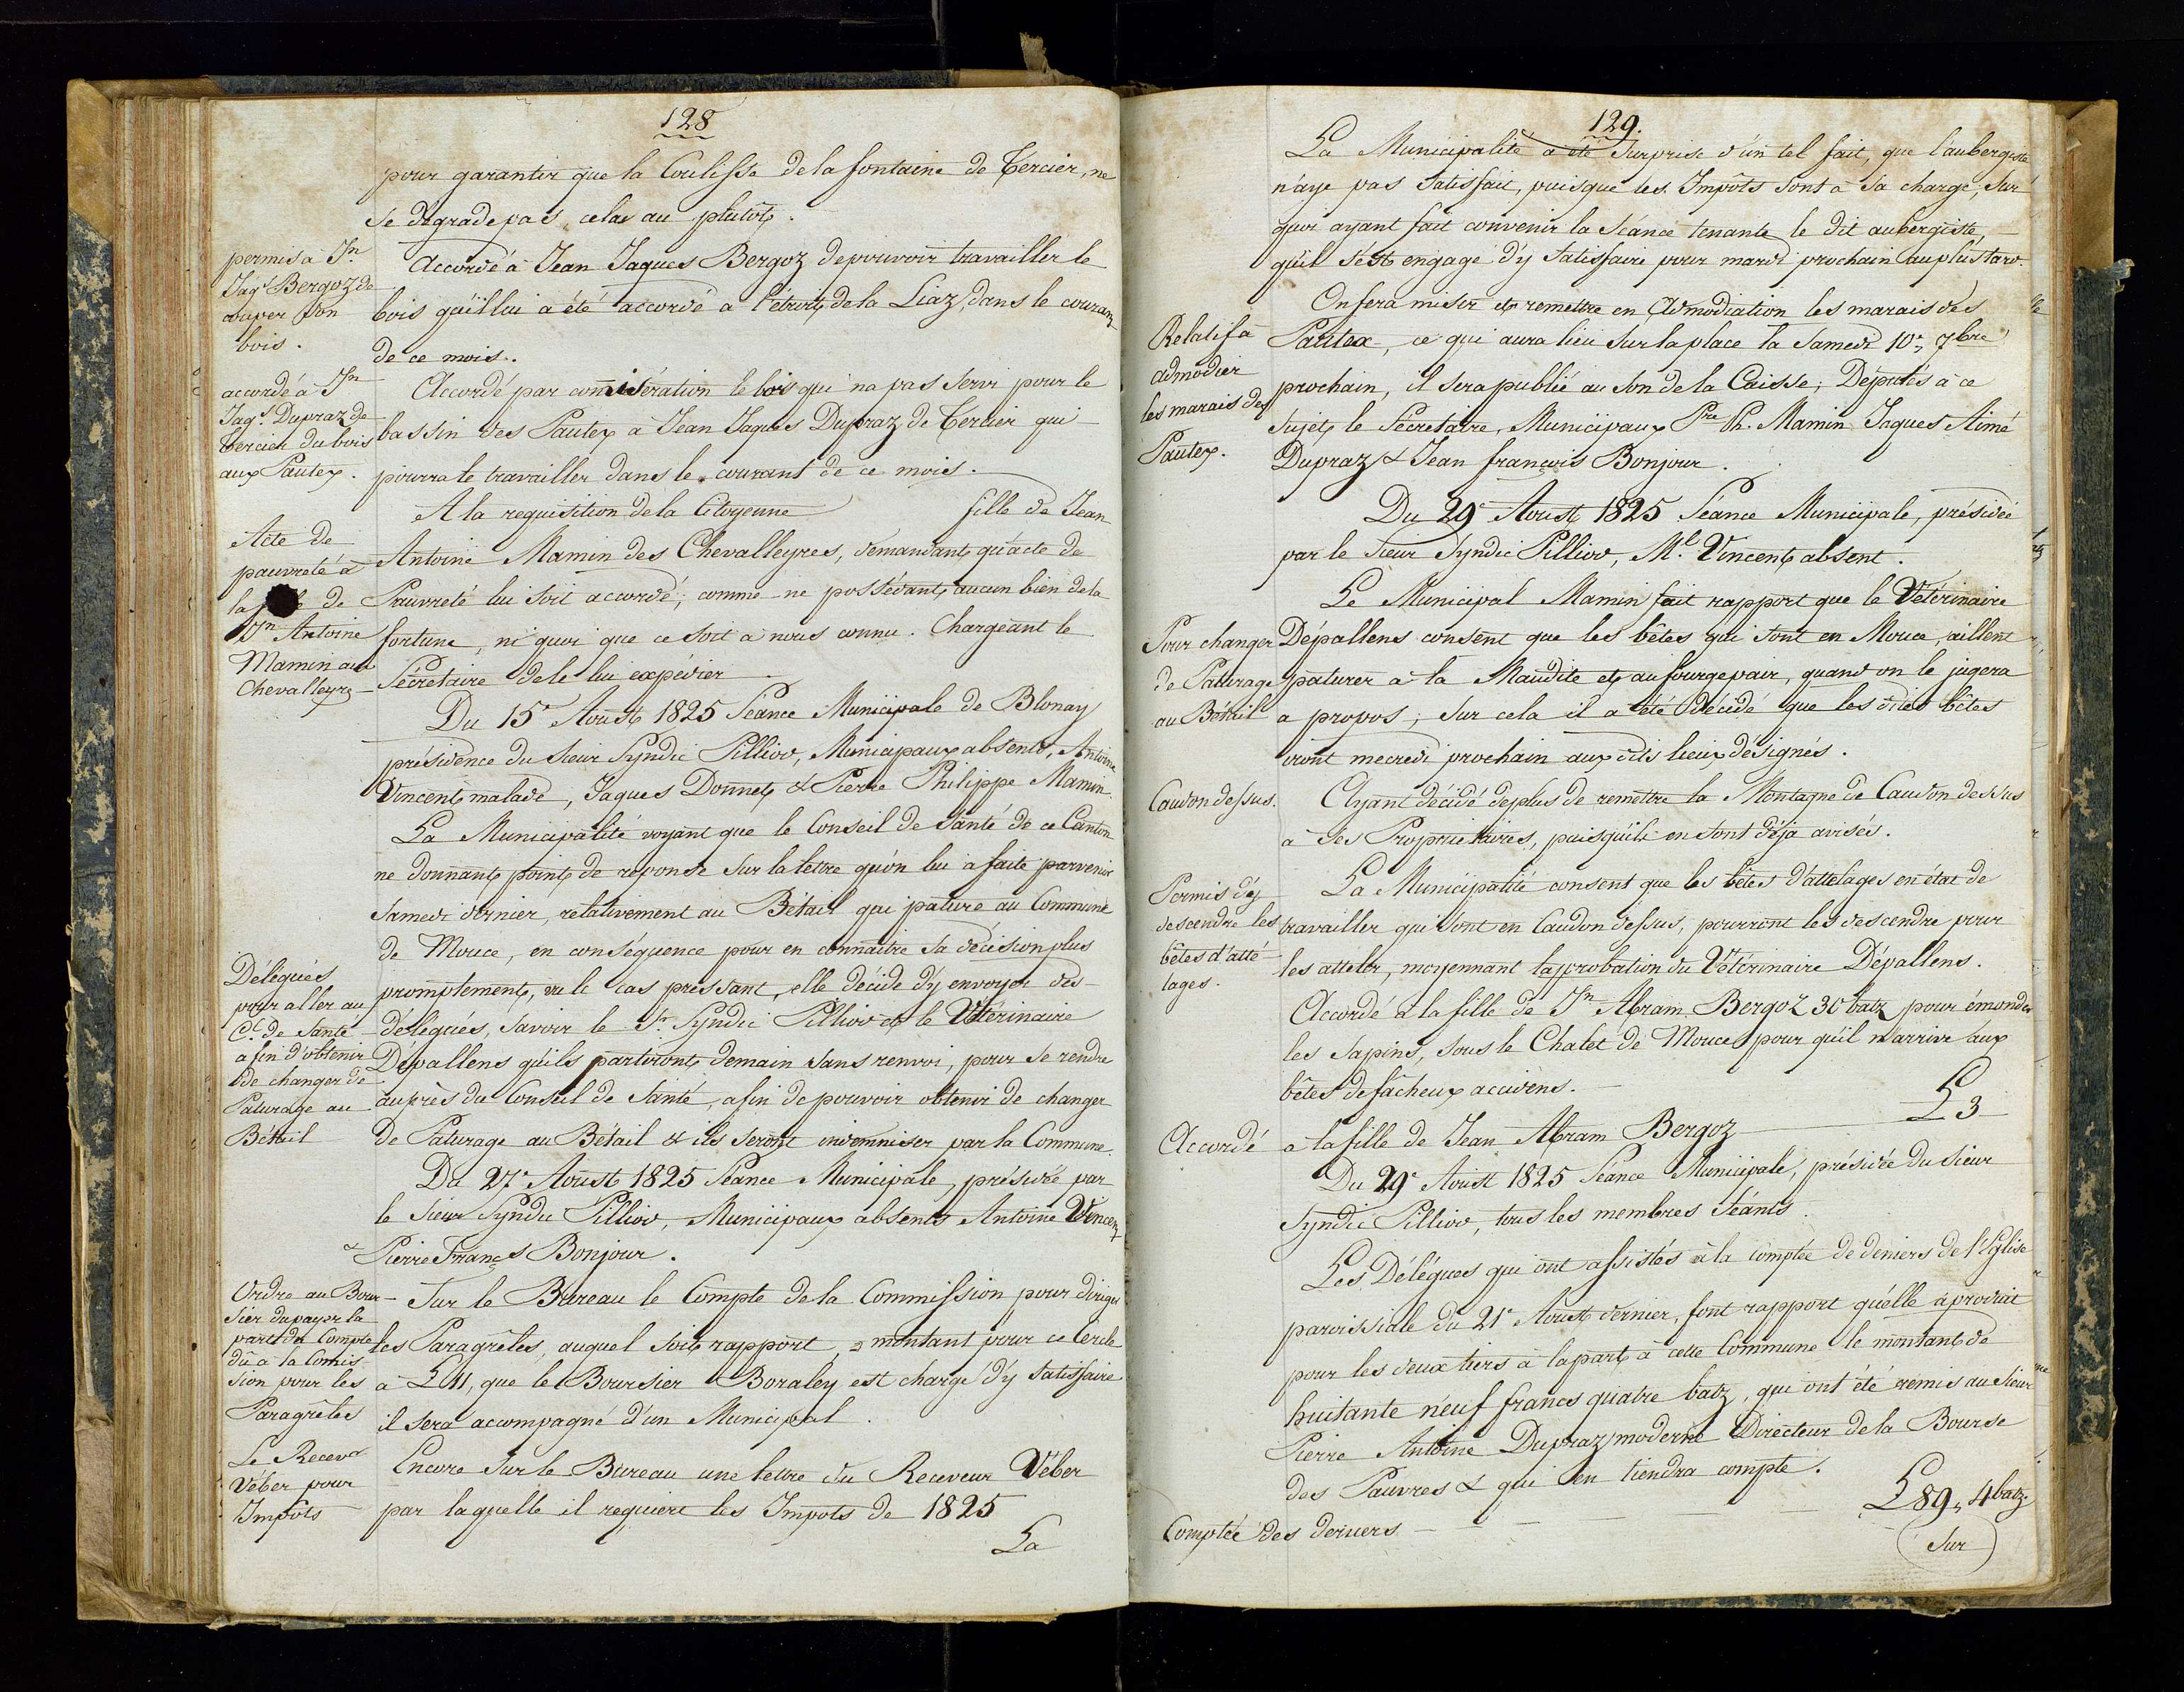 128
pour garantir que la Coulisse de la fontaine de Tercier, ne
se dégrade pas, cela au plutôt.
permis à Jn
Jaqs Bergoz de
couper son
bois.
Accordé à Jean Jaques Bergoz de pouvoir travailler le
bois qu'il lui a été accordé a l'étroit de la Liaz, dans le courant
de ce mois.
accordé à Jn
Jaqs. Dupraz de
Tercier du bois
aux Pautex.
Accordé par considération le bois qui na pas servi pour le
bassin des Pautex à Jean Jaques Dupraz de Tercier qui
pourra le travailler dans le courant de ce mois.
Acte de
pauvreté à
la de
Jn Antoine
Mamin aux
Chevalleyres
A la requisition de la Citoyenne fille de Jean
Antoine Mamin des Chevalleyres, demandant qu'acte de
Pauvreté lui soit accordé; comme ne possédant aucun bien de la
fortune, ni quoi que ce soit à nous connu. Chargeant le
Sécretaire de le lui expédier.
Du 15e Aoust 1825 Séance Municipale de Blonay
présidence du Sieur Syndic Pilliod, Municipaux absents, Antoine
Vincent malade, Jaques Donnet & Pierre Philippe Mamin.
La Municipalité voyant que le Conseil de Santé de ce Canton
ne donnant point de reponse sur la lettre qu'on lui a faite parvenir
Samedi dernier, relativement au Bétail qui pature au Commune
de Mouce, en conséquence pour en connaître sa décision plus
promptement, vu le cas pressant, elle décide d'y envoyer des
Délégués
pour aller au
Cl. de Santé
afin d'obtenir
de changer de
Paturage au
Bétail
délégués, savoir le Sr. Syndic Pilliod et le Vétérinaire
Dépallens qu'ils partiront demain sans renvoi, pour se rendre
auprès du Conseil de Santé, afin de pouvoir obtenir de changer
de Paturage au Bétail & ils seront indemniser par la Commune.
Du 27e Aoust 1825 Séance Municipale, présidée par
le Sieur Syndic Pilliod, Municipaux absents Antoine Vincent
& Pierre Françs Bonjour.
Ordre au Bour-
sier du payer la
part du Compte
dû à la Comis
sion pour les
Paragrêles
Sur le Bureau le Compte de la Commission pour diriger
les Paragrêles, auquel soit rapport, montant pour ce Cercle
à L 11, que le Boursier Boraley est chargé d'y satisfaire
il sera accompagné d'un Municipal.
Le Recevr
Véber pour
Impôts
Encore sur le Bureau une lettre du Receveur Véber
par laquelle il requiert les Impots de 1825
La
129.
La Municipalité a été surprise d'un tel fait, que l'aubergiste
n'aye pas satisfait, puisque les Impôts sont à sa charge, sur
quoi ayant fait convenir la séance tenante le dit aubergiste,
qu'il s'est engagé d'y satisfaire pour mardi prochain au plus tard.
Relatif à
admodier
les marais des
Pautex.
On fera miser et remettre en Admodiation les marais des
Pautex, ce qui aura lieu sur la place la Samedi 10e, 7bre
prochain, il sera publié au son de la Caisse; Députés à ce
sujet, le Sécretaire, Municipaux Pre Ph. Mamin Jaques Aimé
Dupraz & Jean françois Bonjour.
Du 29e Aoust 1825 Séance Municipale, présidée
par le Sieur Syndic Pilliod, Ml. Vincent absent.
Pour changer
de Paturage
au Bétail
Le Municipal Mamin fait rapport que le Vétérinaire
Dépallens consent que les bêtes qui sont en Mouce, aillent
paturer à la Maudite et au fourgepair, quand on le jugera
a propos; sur cela il a été décidé que les dites bêtes
iront mecredi prochain aux dits lieux désignés.
Caudon dessus.
Ayant décidé de plus de remettre la Montagne de Caudon dessus
à ses Propriétaires, puisqu'ils en sont déja avisés.
Permis d'y
descendre les
bêtes d'atté-
lages.
La Municipalité consent que les bêtes d'attelages en état de
travailler qui sont en Caudon dessus, pourront les descendre pour
les atteler, moyennant laprobation du Vétérinaire Dépallens.
Accordé à la fille de Jn Abram Bergoz 30 batz pour émonder
les sapins, sous le Chalet de Mouce pour qu'il n'arrive aux
bêtes de fâcheux accidens.
Accordé à la fille de Jean Abram Bergoz L 3
Du 29e Aoust 1825 Séance Municipale, présidée du Sieur
Syndic Pilliod, tous les membres séants.
Les Délégués qui ont assistés à la comptée de deniers de l'Eglise
paroissiale du 21e Aoust dernier, font rapport qu'elle a produit
pour les deux tiers à la part à cette Commune le montant de
huitante neuf francs quatre batz, qui ont été remis au Sieur
Pierre Antoine Dupraz moderne Directeur de la Bourse
des Pauvres & qui en tiendra compte.
Comptée des deniers L 89, 4 batz.
Sur